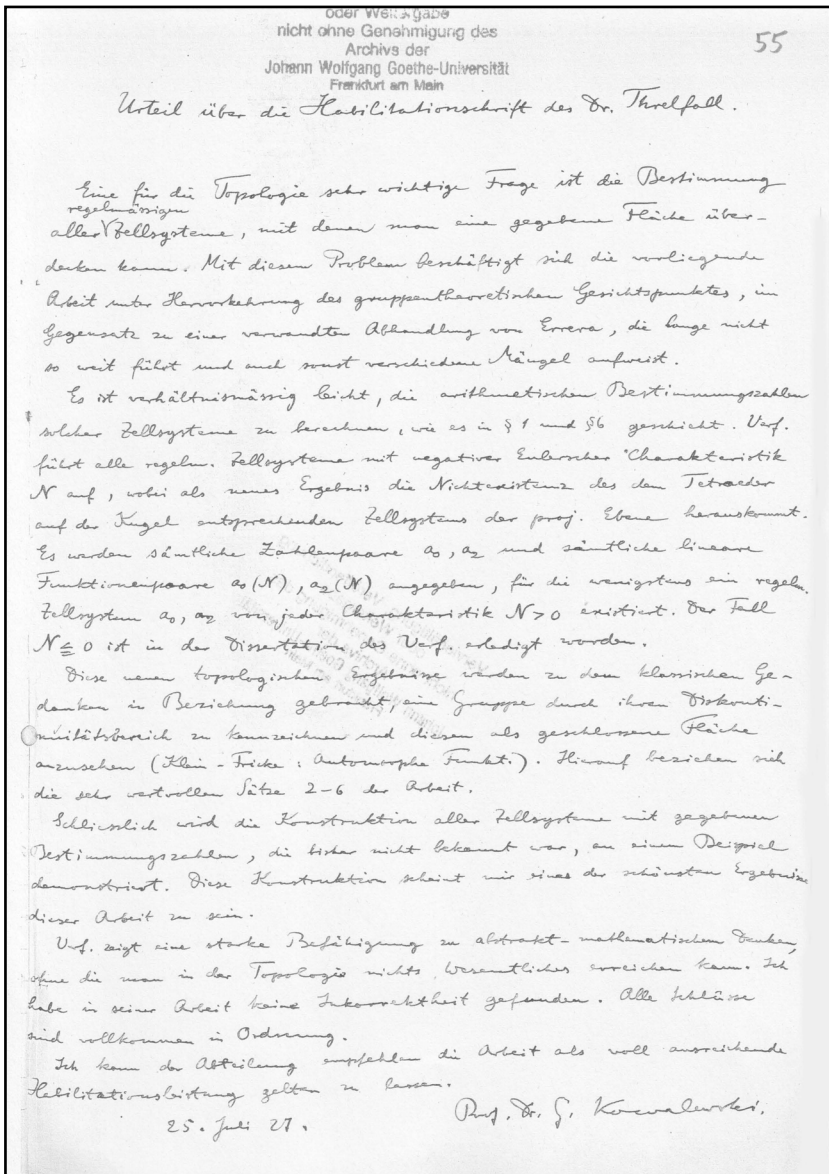 oder Weitergabe
nicht ohne Genehmigung des
Archivs der
Johann Wolfgang Goethe-Universität
Frankfurt am Main
55
Urteil über die Habilitationschrift des Dr. Threlfall.
Eine für die Topologie sehr wichtige Frage ist die Bestimmung
regelmässigen
aller Zellsysteme, mit denen man eine gegebene Fläche über-
decken kann. Mit diesem Problem beschäftigt sich die vorliegende
Arbeit unter Hervorkehrung des gruppentheoretischen Gesichtspunktes, im
Gegensatz zu einer verwandten Abhandlung von Errera, die lange nicht
so weit führt und auch sonst verschiedene Mängel aufweist.
Es ist verhältnismässig leicht, die arithmetischen Bestimmungszahlen
solcher Zellsysteme zu berechnen, wie es in § 1 und § 6 geschieht. Verf.
führt alle regelm. Zellsysteme mit negativer Eulerscher Charakteristik
N auf, wobei als neues Ergebnis die Nichtexistenz des dem Tetraeder
auf der Kugel entsprechenden Zellsystems der proj. Ebene herauskommt.
Es werden sämtliche Zahlenpaare a₀, a₂ und sämtliche lineare
Funktionenpaare a₀(N), a₂(N) angegeben, für die wenigstens ein regelm.
Zellsystem a₀, a₂ von jeder Charakteristik N > 0 existiert. Der Fall
N ≦ 0 ist in der Dissertation des Verf. erledigt worden.
Diese neuen topologischen Ergebnisse werden zu dem klassischen Ge-
danken in Beziehung gebracht, eine Gruppe durch ihren Diskonti-
nuitätsbereich zu kennzeichnen und diesen als geschlossene Fläche
anzusehen (Klein-Fricke: Automorphe Funkt.). Hierauf beziehen sich
die sehr wertvollen Sätze 2-6 der Arbeit.
Schliesslich wird die Konstruktion aller Zellsysteme mit gegebenen
Bestimmungszahlen, die bisher nicht bekannt war, an einem Beispiel
demonstriert. Diese Konstruktion scheint mir eines der schönsten Ergebnisse
dieser Arbeit zu sein.
Verf. zeigt eine starke Befähigung zu abstrakt-mathematischem Denken,
ohne die man in der Topologie nichts Wesentliches erreichen kann. Ich
habe in seiner Arbeit keine Inkorrektheit gefunden. Alle Schlüsse
sind vollkommen in Ordnung.
Ich kann der Abteilung empfehlen die Arbeit als voll ausreichende
Habilitationsleistung gelten zu lassen.
25. Juli 27.
Prof. Dr. G. Kowalewski.